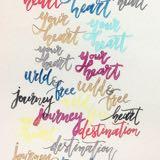 heart heart heart
your your
heart heart
your your
heart heart
wild free
wild
journey free
journey heart
destination
destination
journey